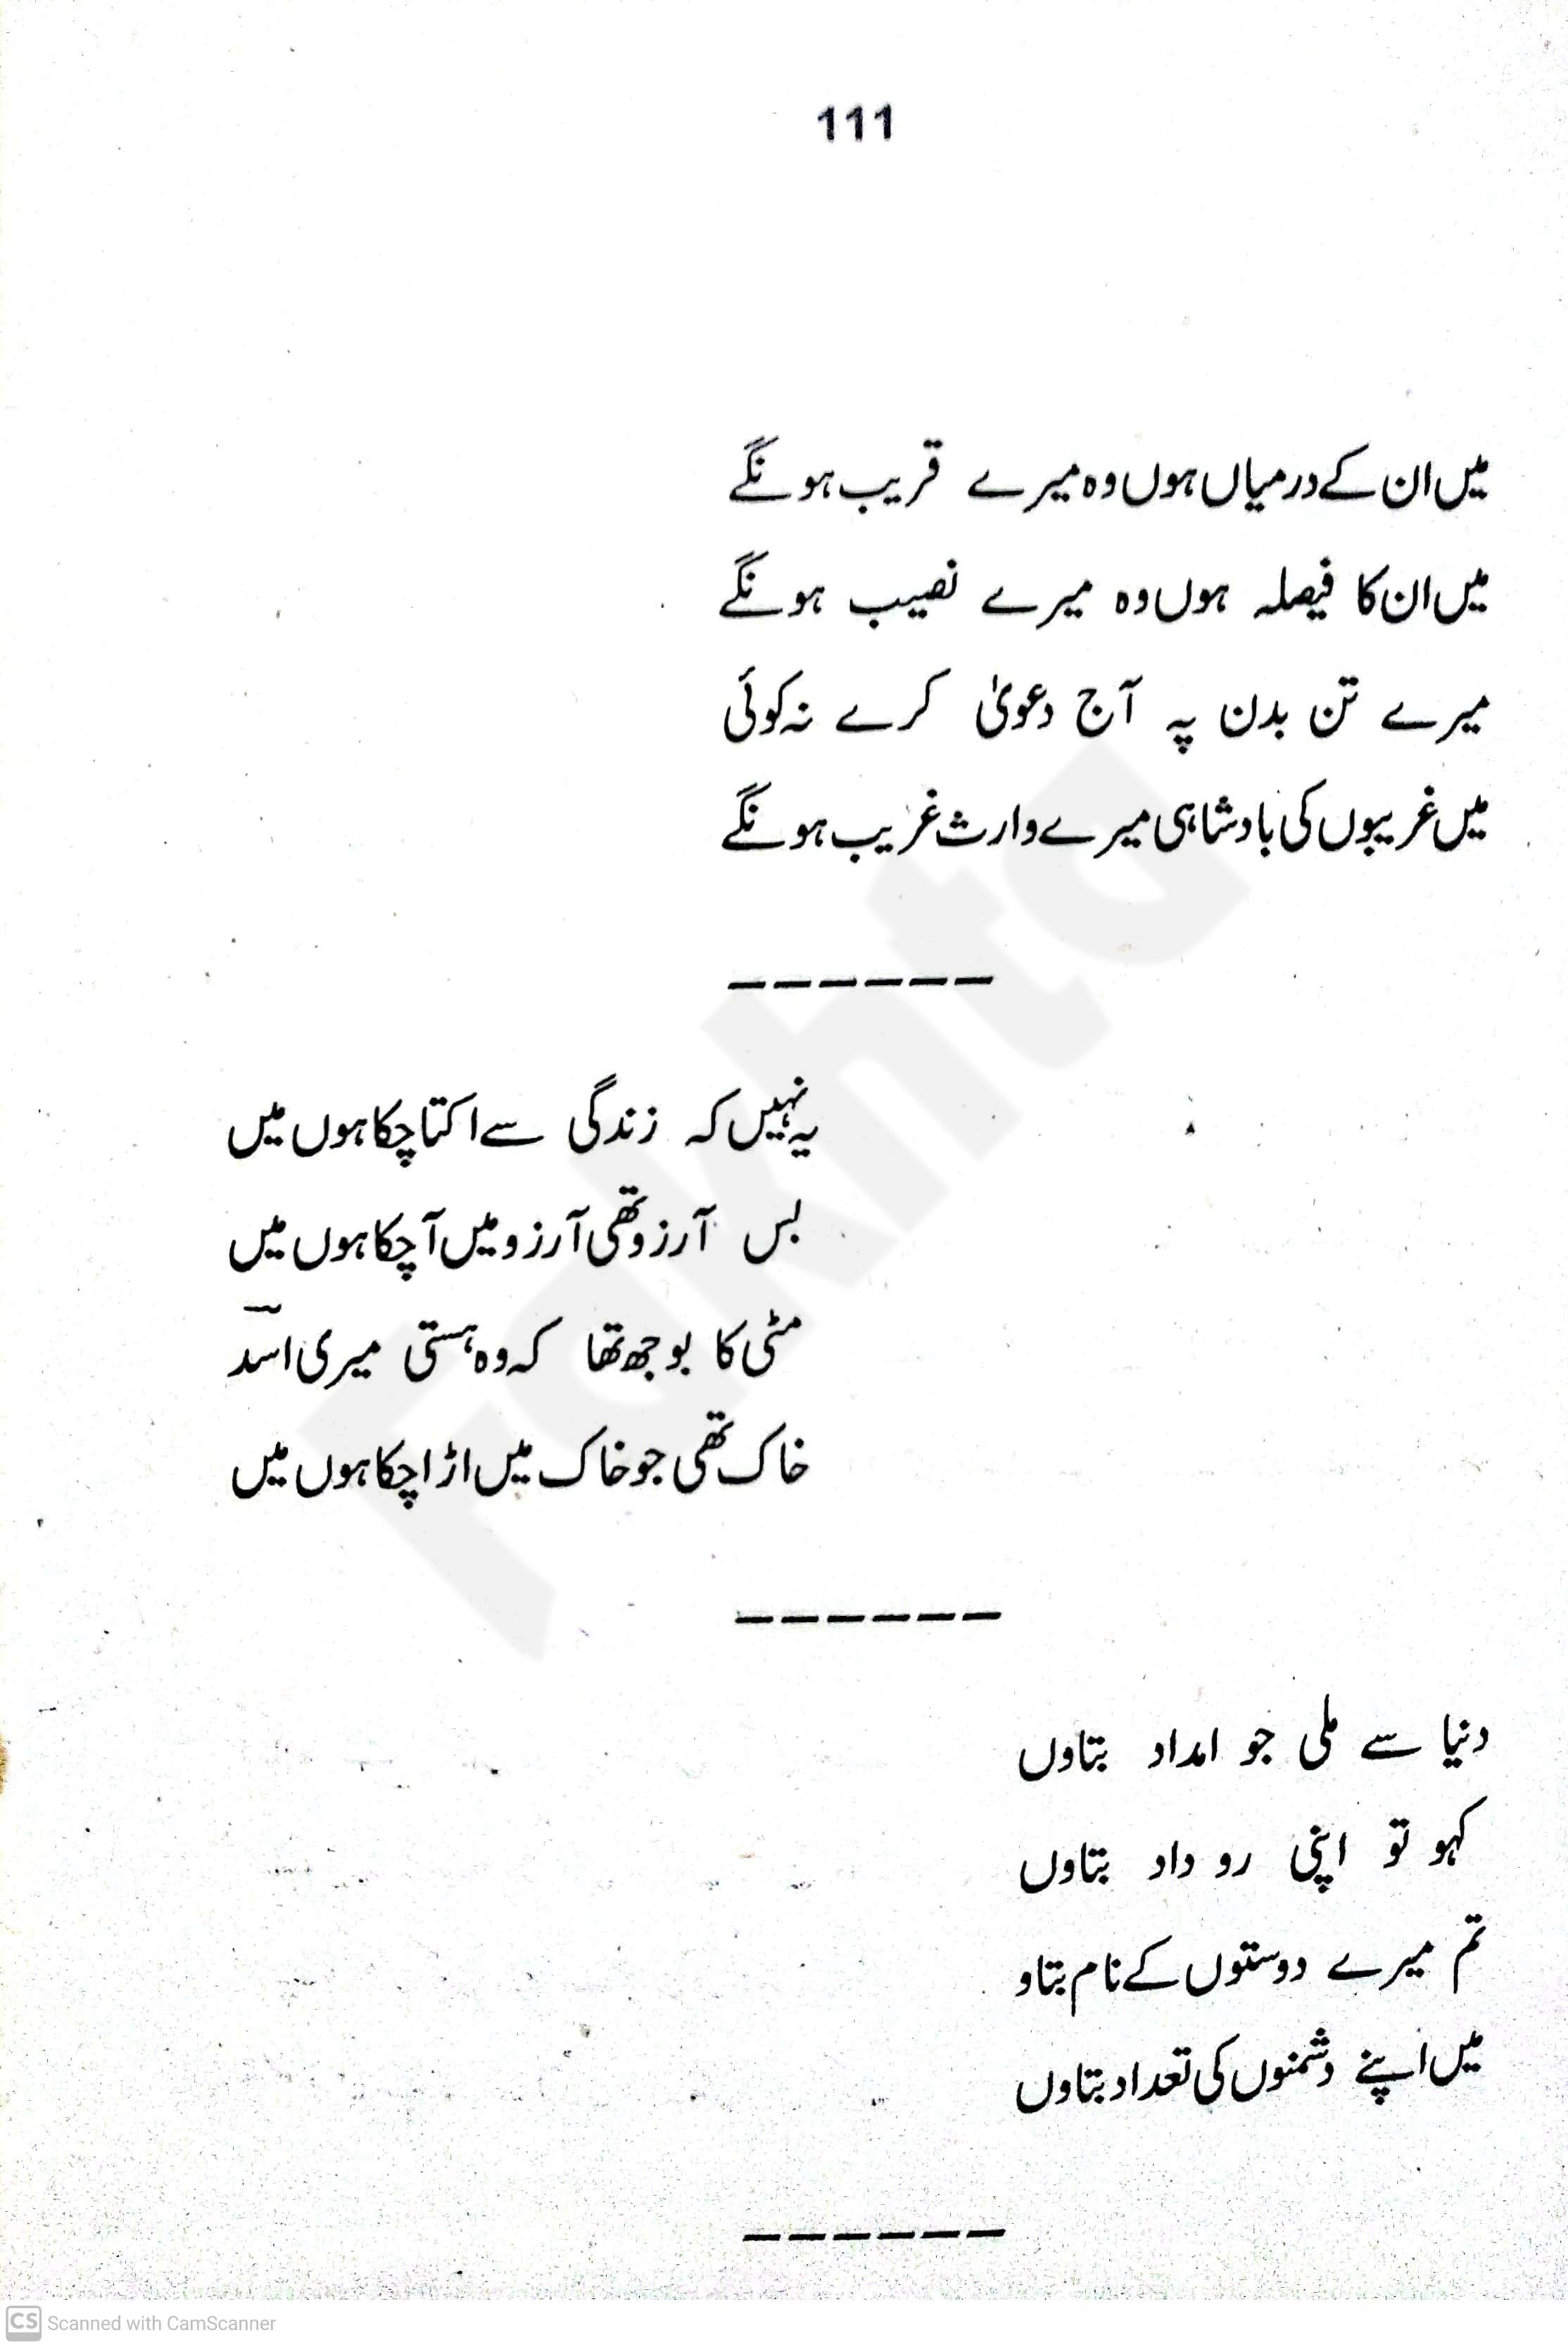 111
میں ان کے درمیاں ہوں وہ میرے قریب ہونگے
میں ان کا فیصلہ ہوں وہ میرے نصیب ہونگے
میرے تن بدن پہ آج دعویٰ کرے نہ کوئی
میں غریبوں کی بادشاہی میرے وارث غریب ہونگے
------
یہ نہیں کہ زندگی سے اکتا چکا ہوں میں
بس آرزو تھی آرزو میں آ چکا ہوں میں
مٹی کا بوجھ تھا کہ وہ ہستی میری اسؔد
خاک تھی جو خاک میں اڑا چکا ہوں میں
------
دنیا سے ملی جو امداد بتاوں
کہو تو اپنی رو داد بتاوں
تم میرے دوستوں کے نام بتاو
میں اپنے دشمنوں کی تعداد بتاوں
------
Fakhta
CS Scanned with CamScanner